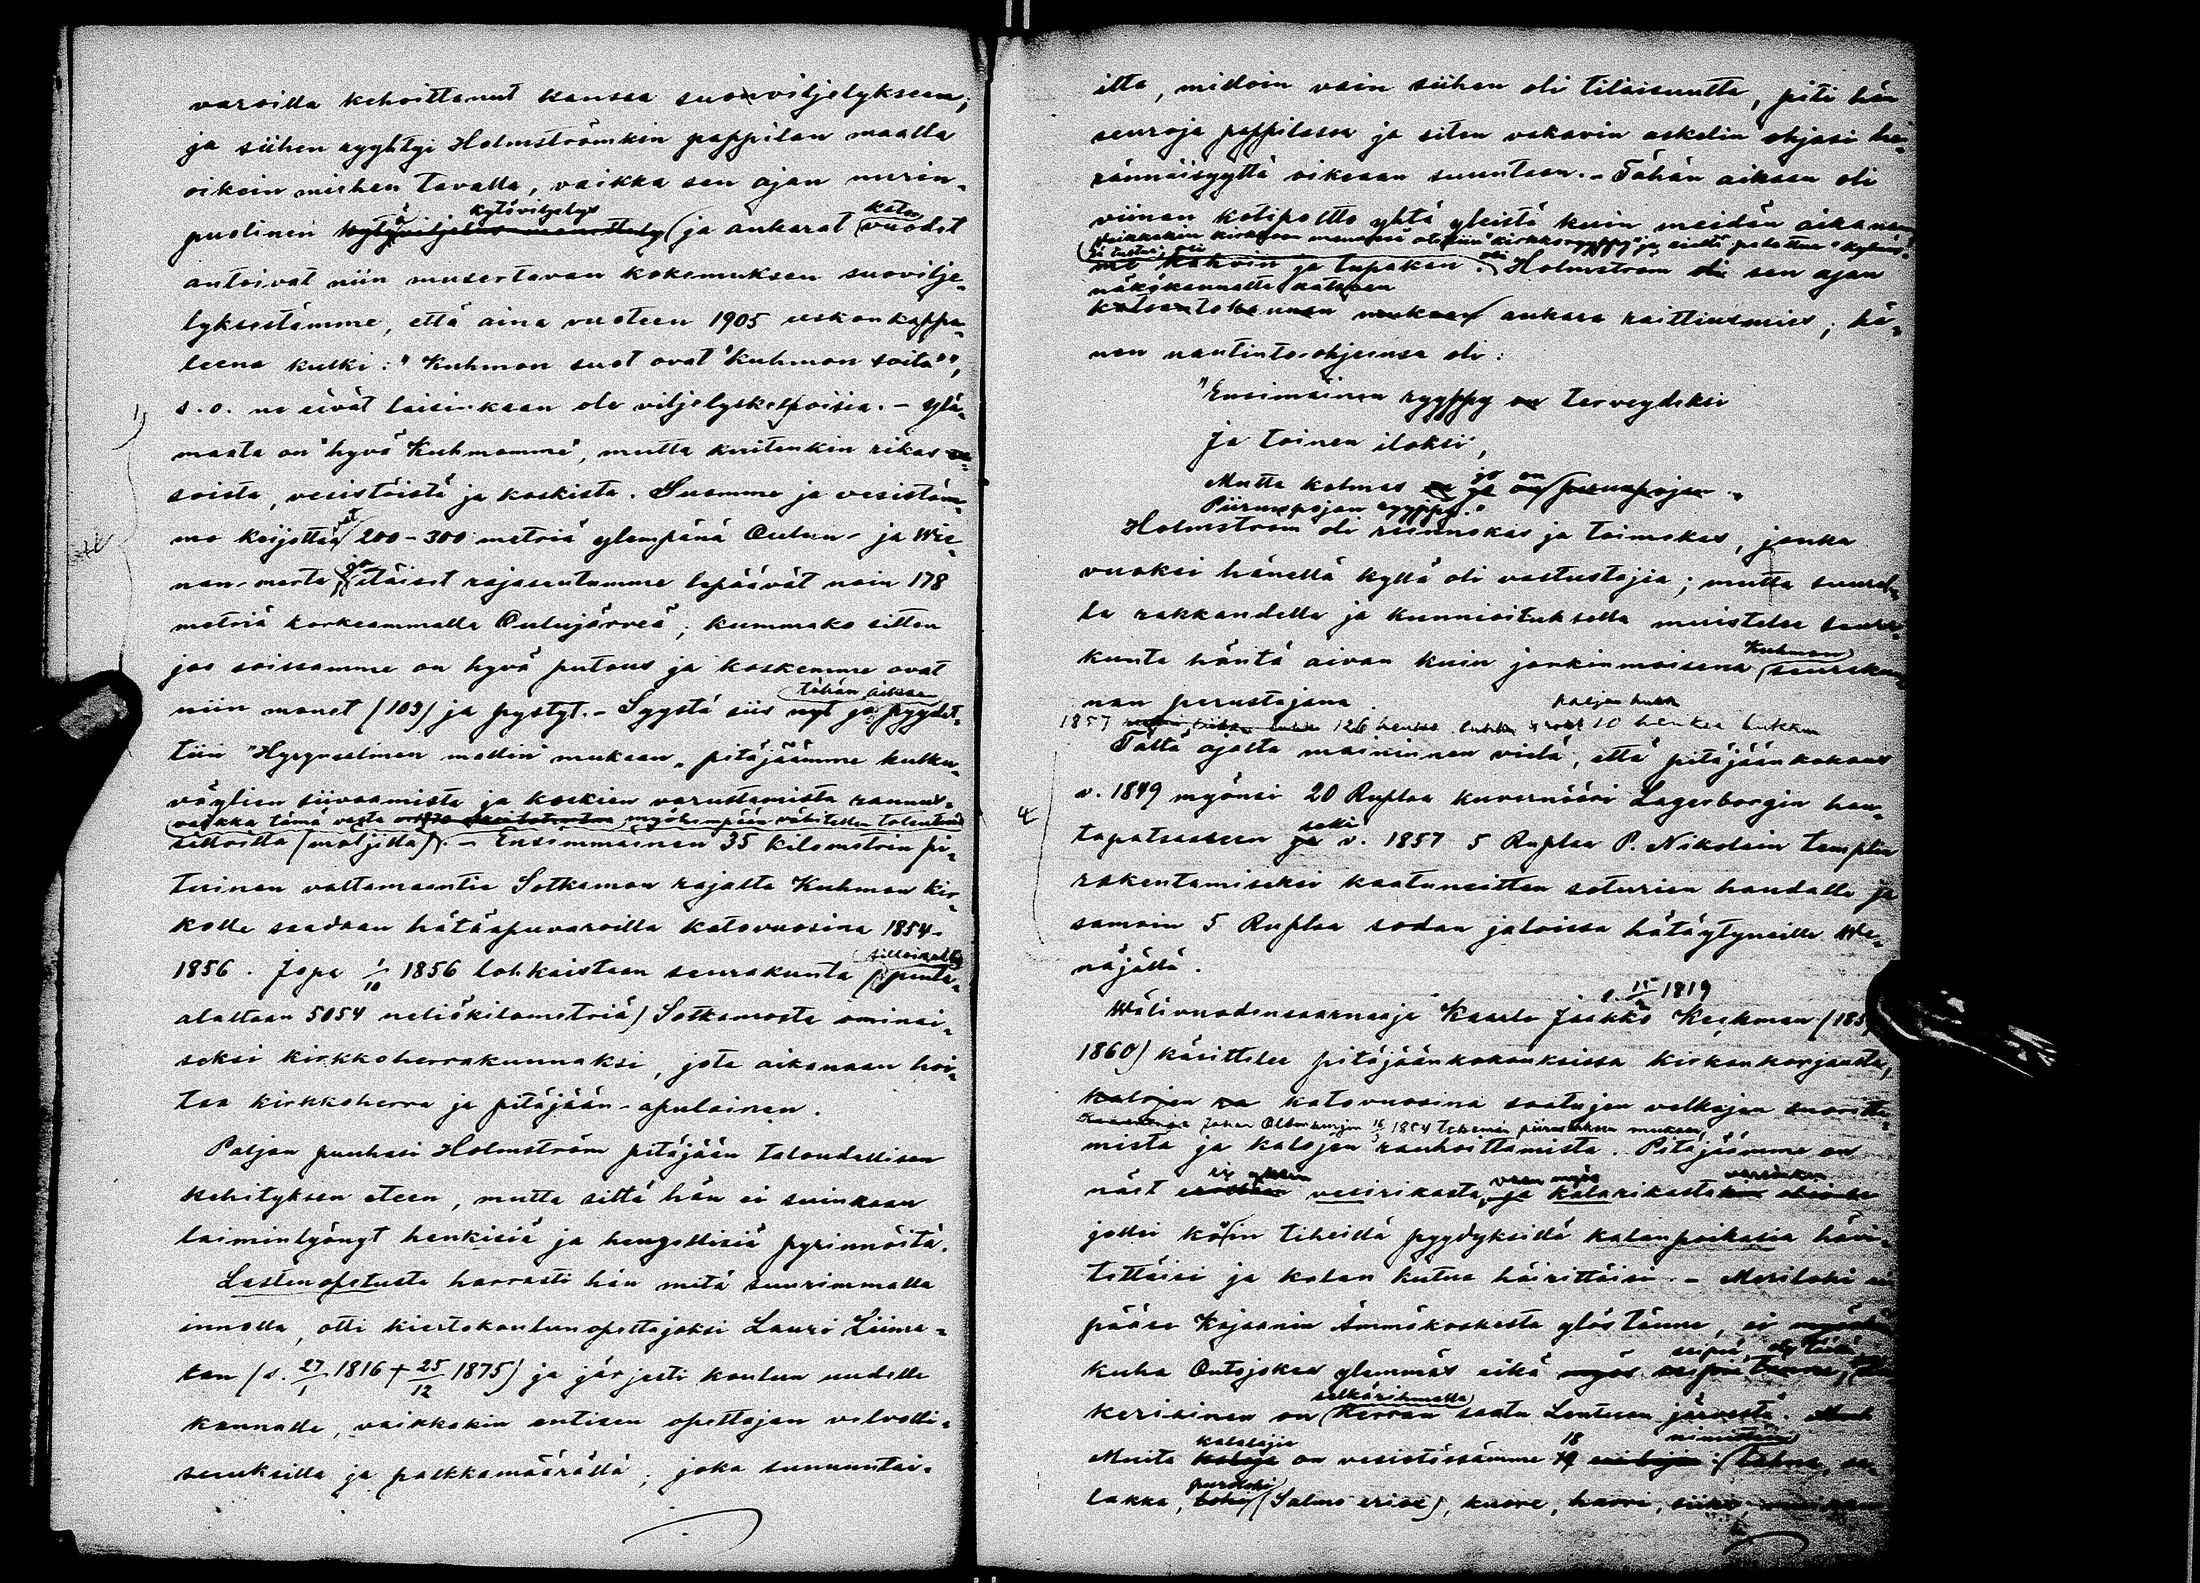 varoilla kehoittanut kansaa suonviljelykseen;
ja siihen ryyhtyi Holmströmkin pappilan maalla
oikein miehen tavalla, vaikka sen ajan nurin-
kytöviljelys kato
puolinen (ja ankarat vuodet
antoivat niin musertavan kokemuksen suovilje-
lyksestämme, että aina vuoteen 1905 uskonkappa-
leena kulki: "Kuhmon suot ovat "Kuhmon soita"",
s.o. ne eivät laisinkaan ole viljelyskelpoisia. - Ylä-
maata on "hyvä Kuhmomme", mutta kuitenkin rikas
soista, vesistöistä ja koskista. Suomme ja vesistöm-
me keijottavat 200-300 metriä ylempänä Oulun- ja Wie-
nan-merta ja itäiset rajaseutumme lepäävät noin 178
metriä korkeammalla Oulujärveä; kummako sitten
jos soissamme on hyvä putous ja koskemme ovat
tähän aikaan
niin monet (103) ja pystyt. - Syystä siis nyt jo pyydet-
tiin "Hyrynsalmen mallin mukaan" pitäjäämme kulku-
väylien siivoamista ja koskien varustamista rannus-
vaikka tämä vasta myöhempään vähitellen toteutui
silloilla (möljillä). - Ensimmäinen 35 kilometrin pi-
tuinen valtamaantie Sotkamon rajalta Kuhmon kir-
kolle saadaan hätäapuvaroilla katovuosina 1854-
silloiselta
1856. Jopa 1/10 1856 lohkaistaan seurakunta (pinta-
alaltaan 5054 neliökilometriä) Sotkamosta ominai-
seksi kirkkoherrakunnaksi, jota aikanaan hoi-
taa kirkkoherra ja pitäjään-apulainen.
Paljon puuhasi Holmström pitäjään taloudellisen
kehityksen eteen, mutta siltä hän ei suinkaan
laiminlyönyt henkisiä ja hengellisiä pyrinnöitä.
Lastenopetusta harrasti hän mitä suurimmalla
innolla, otti kiertokoulunopettajaksi Lauri Liima-
tan (s. 27/1 1816 + 25/12 1875) ja järjesti koulun uudelle
kannalle, vaikkakin entisen opettajan velvolli-
suuksilla ja palkkamäärällä; joka sunnuntai-
ilta, milloin vain siihen oli tilaisuutta, piti hän
seuroja pappilassa ja siten vakavin askelin ohjasi he-
rännäisyyttä oikeaan suuntaan. - Tähän aikaan oli
viinan kotipoltto yhtä yleistä kuin meidän aikanam-
me kahvin ja tupakan. Holmström oli sen ajan
näkökannalta katsoen
katsantokannan mukaan ankara raittiusmies; hä-
nen nautinto-ohjeensa oli:
"Ensimäinen ryyppy on terveydeksi
Ja toinen iloksi,
Mutta kolmas jo on
Piirunpojan ryyppy."
Holmström oli reunnokas ja toimekas, jonka
vuoksi hänellä kyllä oli vastustajia; mutta suurel-
la rakkaudella ja kunnioituksella muistelee seura-
Kuhmon
kunta häntä aivan kuin jonkinmoisena seurakun-
nan perustajana.
1857 126 henkeä 10 henkeä hukkui
Tältä ajalta mainninen vielä, että pitäjäänkokous
v. 1849 myönsi 20 Ruplaa kuvernööri Lagerborgin hau-
sekä
tapatsaaseen ja v. 1857 5 Ruplaa P. Nikolain templin
rakentamiseksi kaatuneitten soturien haudalle ja
samoin 5 Ruplaa sodan jaloissa hätäytyneille We-
näjällä.
s. 15/2 1819
Wälivuodensaarnaaja Kaarlo Jaakko Keckman (185
1860) käsittelee pitäjäänkokouksissa kirkonkorjausta,
kalojen katovuosina saatujen velkojen suoritta-
Johan Oldenburgin 16/ 1854 tekemän piirustuksen mukaan,
mista ja kalojen rauhoittamista. Pitäjäämme on
ei yksin vaan myös varsinkin
näet vesirikasta, ja kalarikasta
jollei koin tiheillä pyydyksillä kalanpoikasia hävi-
tettäisi ja kalan kutua häirittäisi. - Merilohi ei
pääse Kajaanin Ämmäkoskesta ylös tänne, ei
seipiä,
kuha Ontojokea ylemmäs eikä myös
selkärihmalla
keriäinen on kerran saatu Lentuan järvestä.
kalalajia 18 nimittäin
Muita kaloja on vesistössämme
purolohi
lakka, lohi (Salmo eriox), kuore, harri, siika,